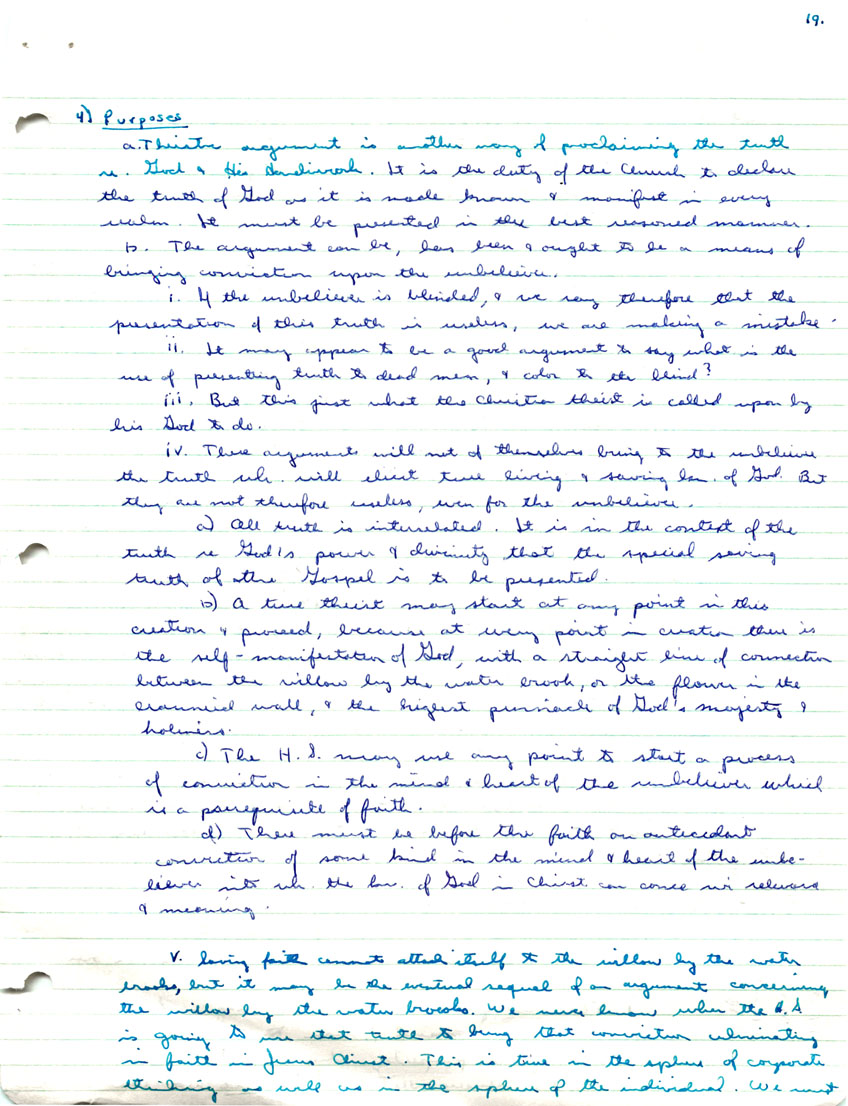 19.
4) Purposes
a. Theistic argument is another way of proclaiming the truth
re. God & His Handiwork. It is the duty of the Church to declare
the truth of God as it is made known & manifest in every
realm. It must be presented in the best reasoned manner.
b. The argument can be, has been & ought to be a means of
bringing conviction upon the unbeliever.
i. If the unbeliever is blinded, & we say therefore that the
presentation of this truth is useless, we are making a mistake.
ii. It may appear to be a good argument to say what is the
use of presenting truth to dead men, & color to the blind?
iii. But this just what the Christian theist is called upon by
his God to do.
iv. These arguments will not of themselves bring to the unbeliever
the truth wh. will elicit true living & saving kn. of God. But
they are not therefore useless, even for the unbeliever.
a) All truth is interrelated. It is in the context of the
truth re God's power & divinity that the special saving
truth of the Gospel is to be presented.
b) A true theist may start at any point in this
creation & proceed, because at every point in creation there is
the self-manifestation of God, with a straight line of connection
between the willow by the water brook, or the flower in the
crannied wall, & the highest pinnacle of God's majesty &
holiness.
c) The H.S. may use any point to start a process
of conviction in the mind & heart of the unbeliever which
is a prerequisite of faith.
d) There must be before the faith an antecedant
conviction of some kind in the mind & heart of the unbe-
liever into wh. the kn. of God in Christ can come w/ relevance
& meaning.
v. Saving faith cannot attach itself to the willow by the water
brooks, but it may be the eventual sequel of an argument concerning
the willow by the water brooks. We never know when the H.S
is going to use that truth to bring that conviction culminating
in faith in Jesus Christ. This is true in the sphere of corporate
thinking as well as in the sphere of the individual. We must